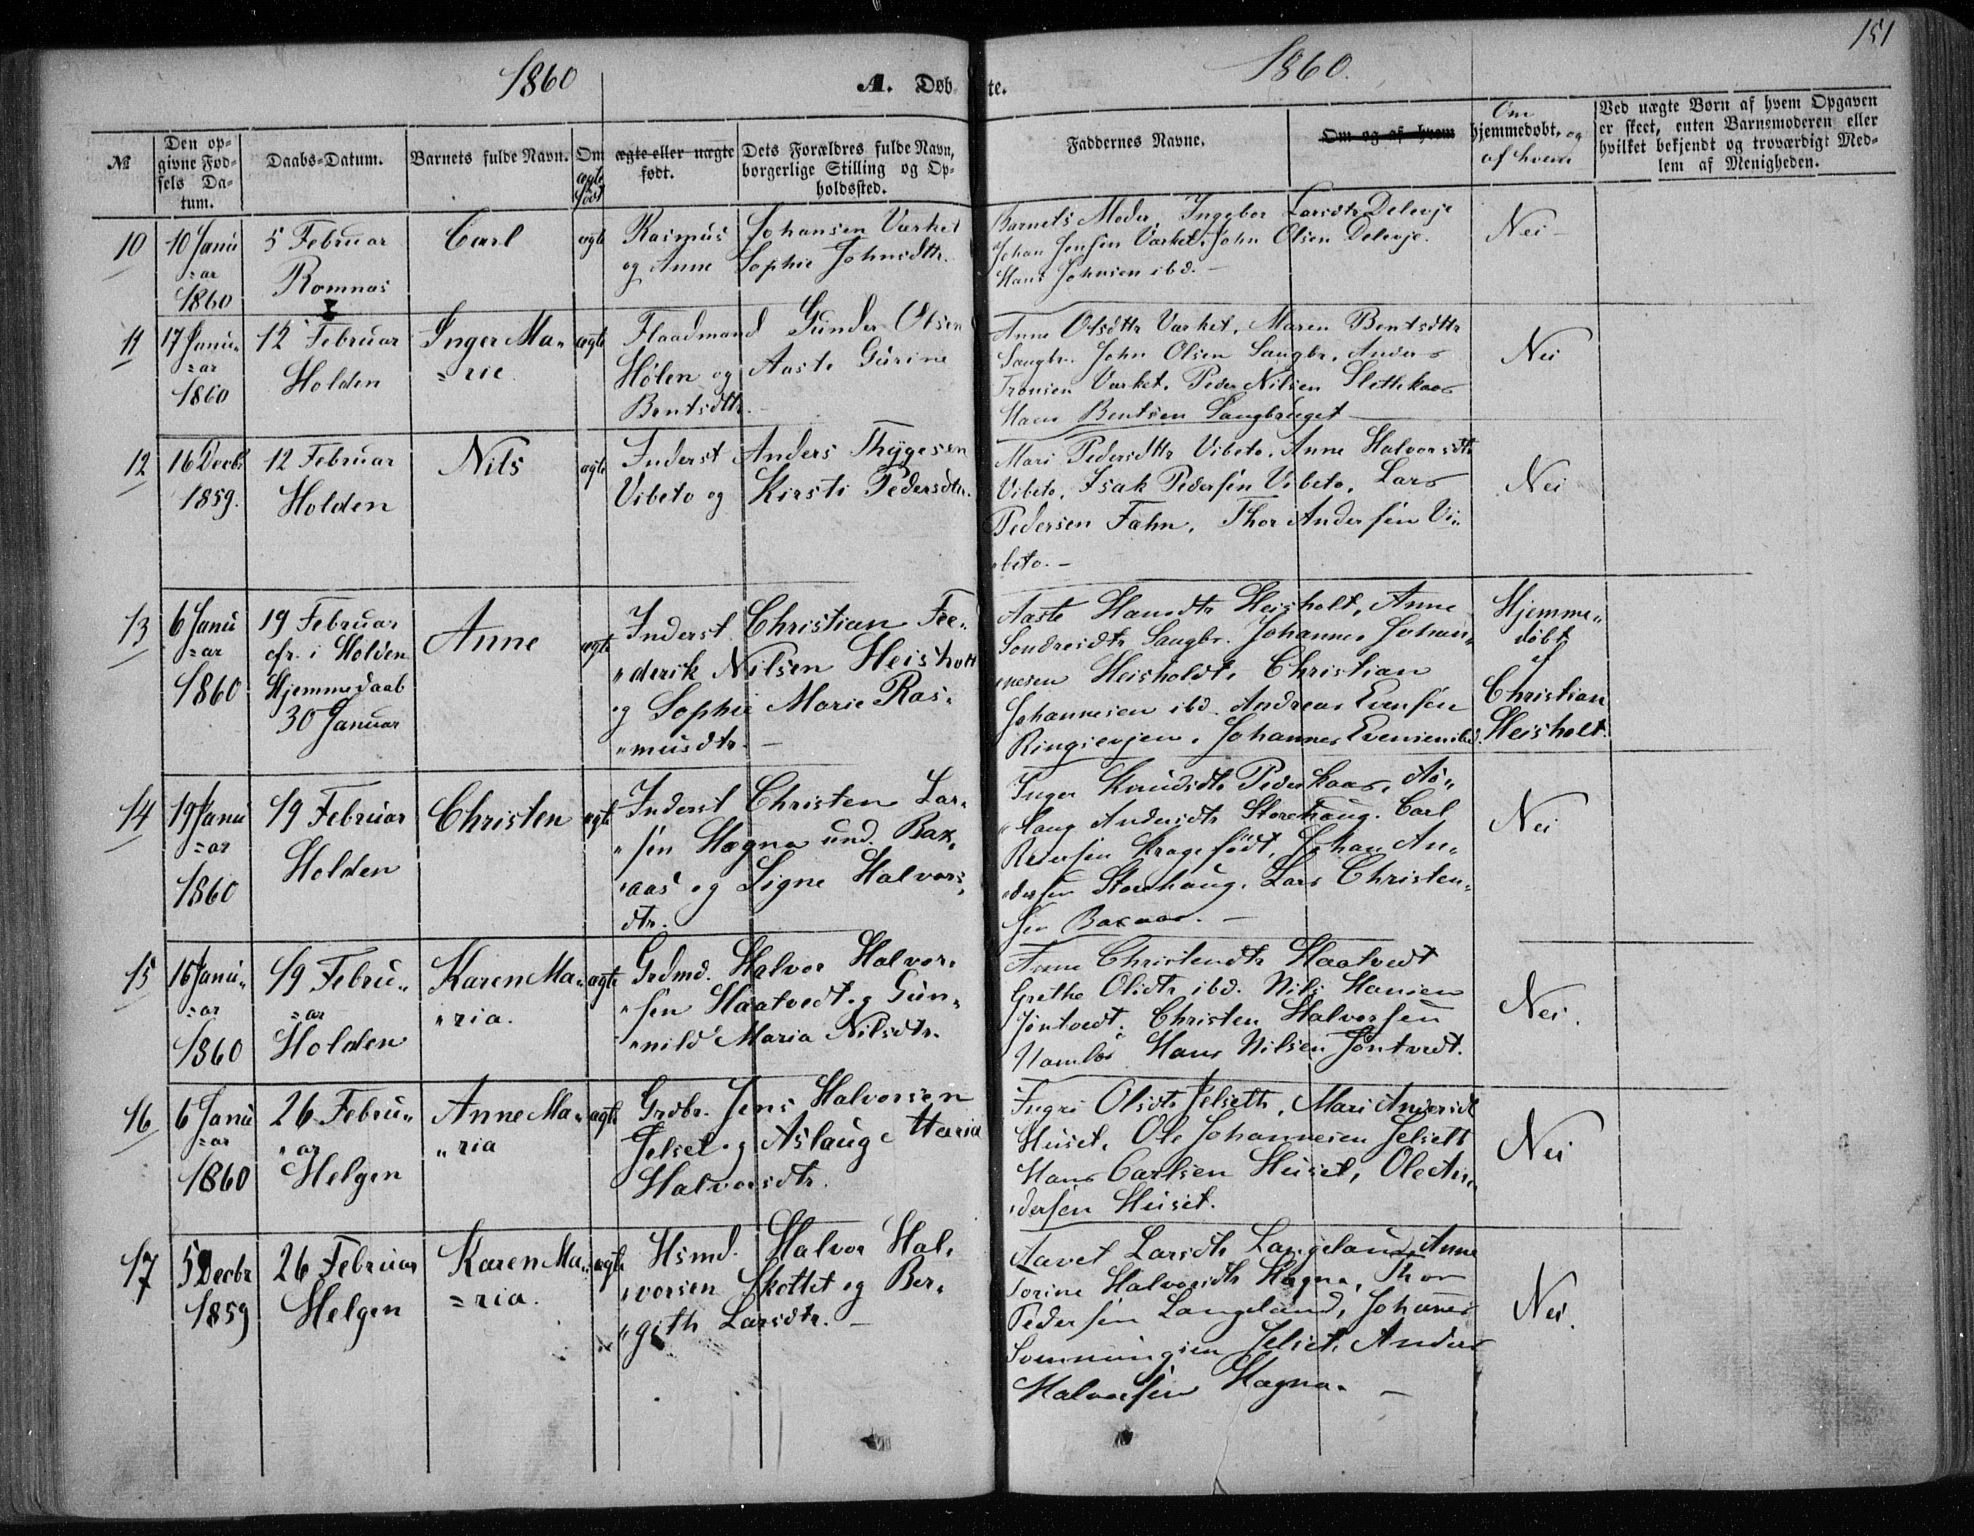 151
1860
1860.
A. Døb-
te.
№
Den op-
givne Fød-
sels Da-
tum.
Daabs-Datum.
Barnets fulde Navn.
Om
ægte
født
ægte eller uægte
født.
Dets Forældres fulde Navn,
borgerlige Stilling og Op-
holdssted.
Faddernes Navne.
Om og af hvem
Om
hjemmedøbt, og
af hvem
Ved uægte Børn af hvem Opgaven
er skeet, enten Barnemoderen eller
hvilket bekjendt og troværdigt Med-
lem af Menigheden.
10
10 Janu
=ar
1860
5 Februar
Romnæs
Carl
ægte
Rasmus Johansen Værket
og Anne Sophie Johnsdtr.
Barnets Moder, Ingebor Larsdtr Delevje
Johan Jensen Værket, John Olsen Delevje.
Hans Johnsen ibd. -
Nei -
11
17 Janu„
=ar
1860
12 Februar
Holden
Inger Ma„
=rie
ægte
Flaadmand Gunder Olsen
Hølen og Aaste Gurine
Bentsdtr. -
Anne Olsdtr Værket, Maren Bentsdtr
Saugbr. John Olsen Saugbr, Anders
Tronsen Værket, Peder Nilsen Slettekaas
Hans Bentsen Saugbruget
Nei
12
16 Decbr
1859.
12 Februar
Holden
Nils
ægte
Inderst Anders Thygesen
Vibeto og Kirsti Pedersdtr.
Mari Pedersdtr Vibeto, Anne Halvorsdtr
Vibeto, Isak Pedersen Vibeto, Lars
Pedersen Fahn, Thor Andersen Vi„
„beto. -
Nei
13
6 Janu
=ar
1860
19 Februar
cfr. i Holden
Hjemmedaab
30 Januar
Anne
ægte
Inderst Christian Fre„
„derik Nilsen Heisholt
og Sophie Marie Ras„
„musdtr. -
Aaste Hansdtr Heisholt, Anne
Sondresdtr Saugbr. Johannes Johan„
„nesen Heisholdt, Christian
Johannesen ibd. Andreas Evensen
Ringsevjen, Johannes Evensen ibd.
Hjemme„
døbt
af
Christian
Heisholt.
14
19 Janu
=ar
1860
19 Februar
Holden
Christen
ægte
Inderst Christen Lar„
„sen Hægna und. Bax„
„aas og Signe Halvors„
dtr.
Inger Knudsdtr Pederskaas, As„
„laug Andersdtr Storehaug. Carl
Kragefødt, Johan An„
„dersen Storehaug, Lars Christen„
sen Baxaas. -
Nei
15
16 Janu„
=ar
1860
19 Febru„
=ar
Holden
Karen Ma„
„ria.
ægte
Grdmd. Halvor Halvor„
„sen Haatvedt og Gun„
„nild Maria Nilsdtr.
Anne Christendtr Haatvedt
Grethe Olsdtr ibd. Nils Hansen
Jøntvedt. Christen Halvorsen
Namløs Hans Nilsen Jøntvedt.
Nei.
16
6 Janu
=ar
1860
26 Febru„
„ar
Helgen
Anne Ma„
„ria
ægte
Grdbr. Jens Halvorsen
Jelset og Aslaug Maria
Halvorsdtr.
Ingri Olsdtr Jelseth, Mari Andersdtr
Huset, Ole Johannesen Jelseth
Hans Carlsen Huset, Ole An„
„dersen Huset.
Nei
17
5 Decbr
1859
26 Februar
Helgen
Karen Ma„
=ria.
ægte
Hsmd. Halvor Hal„
„vorsen Skottet og Ber„
„gith Larsdtr. -
Aavet Larsdtr Langeland, Anne
Torine Halvorsdtr Hægna, Thor
Pedersen Langeland, Johannes
Jelset, Anders
Halvorsen Hægna. -
Nei.